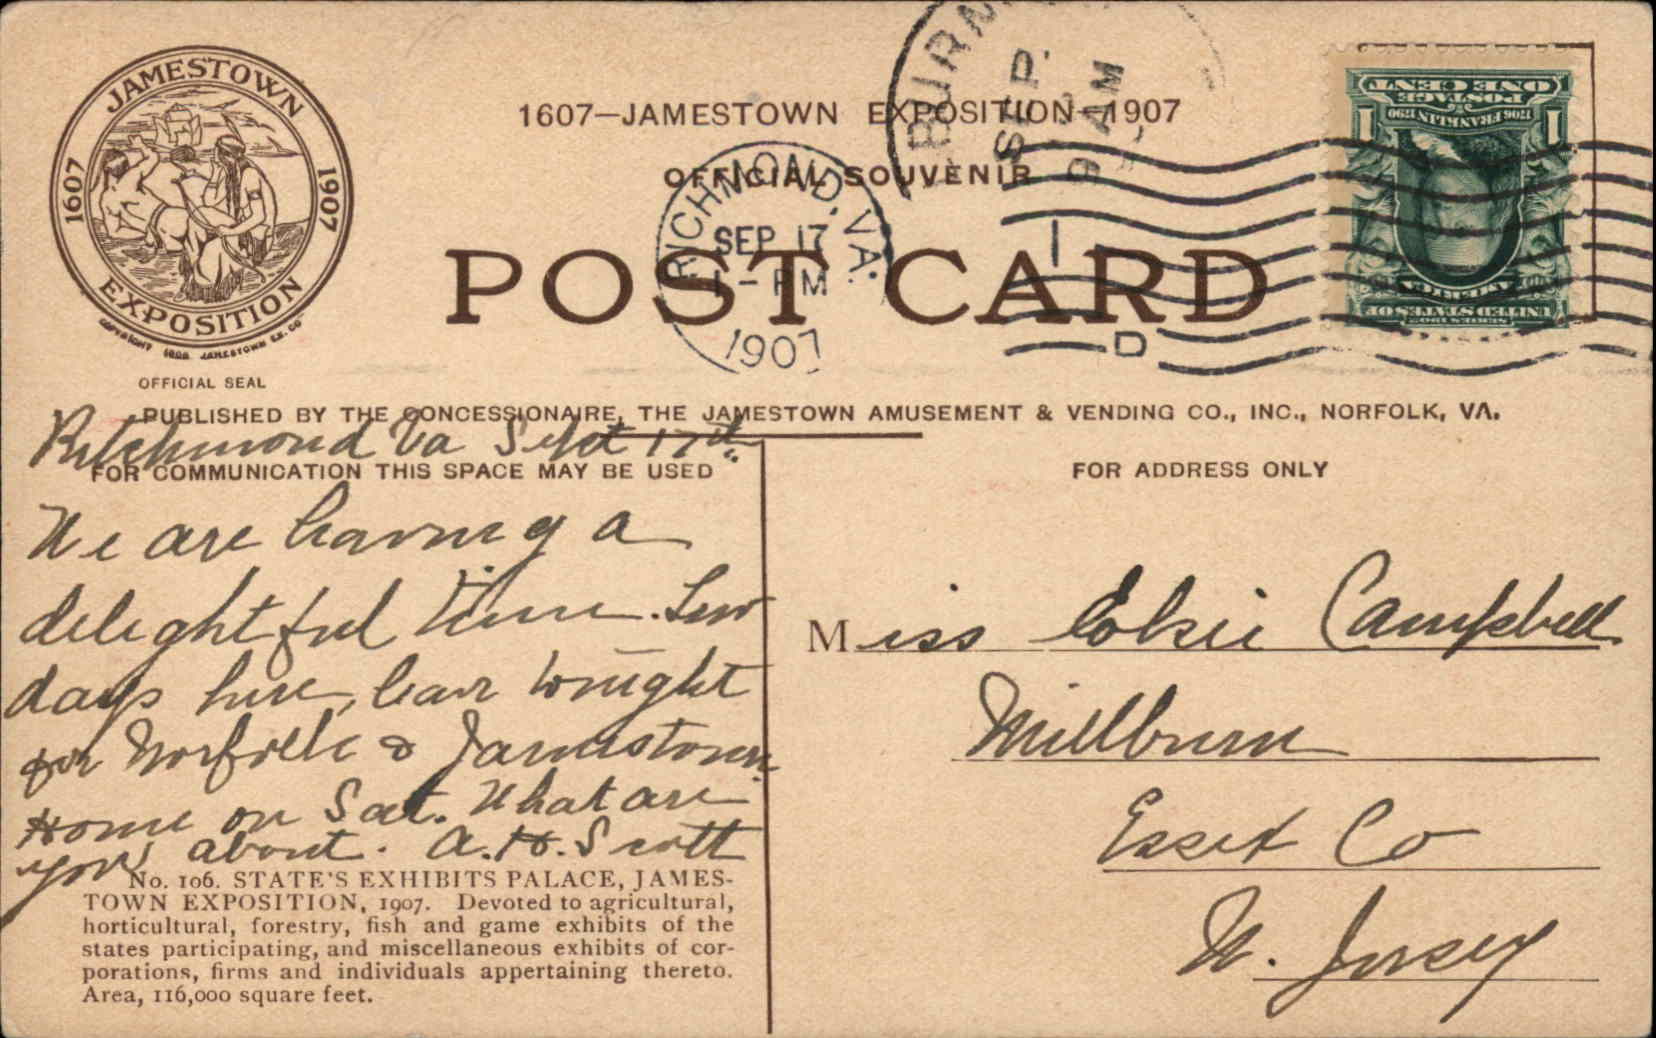 JAMESTOWN
1607 1907
EXPOSITION
COPYRIGHT 1906 JAMESTOWN EX. CO.
OFFICIAL SEAL
1607—JAMESTOWN EXPOSITION—1907
OFFICIAL SOUVENIR
POST CARD
RICHMOND, VA.
SEP 17
1 - PM
1907
SEP
9 AM
D
ONE CENT
POSTAGE
1706 FRANKLIN 1790
1 1
AMERICA
UNITED STATES OF
SERIES 1902
PUBLISHED BY THE CONCESSIONAIRE, THE JAMESTOWN AMUSEMENT & VENDING CO., INC., NORFOLK, VA.
Richmond Va Sept 17th
FOR COMMUNICATION THIS SPACE MAY BE USED
We are having a
delightful time. Few
days here, leave tonight
for Norfolk & Jamestown.
Home on Sat. What are
you about. A. H. Scott
No. 106. STATE'S EXHIBITS PALACE, JAMES-
TOWN EXPOSITION, 1907. Devoted to agricultural,
horticultural, forestry, fish and game exhibits of the
states participating, and miscellaneous exhibits of cor-
porations, firms and individuals appertaining thereto.
Area, 116,000 square feet.
FOR ADDRESS ONLY
Miss Elsie Campbell
Millburn
Essex Co
N. Jersey